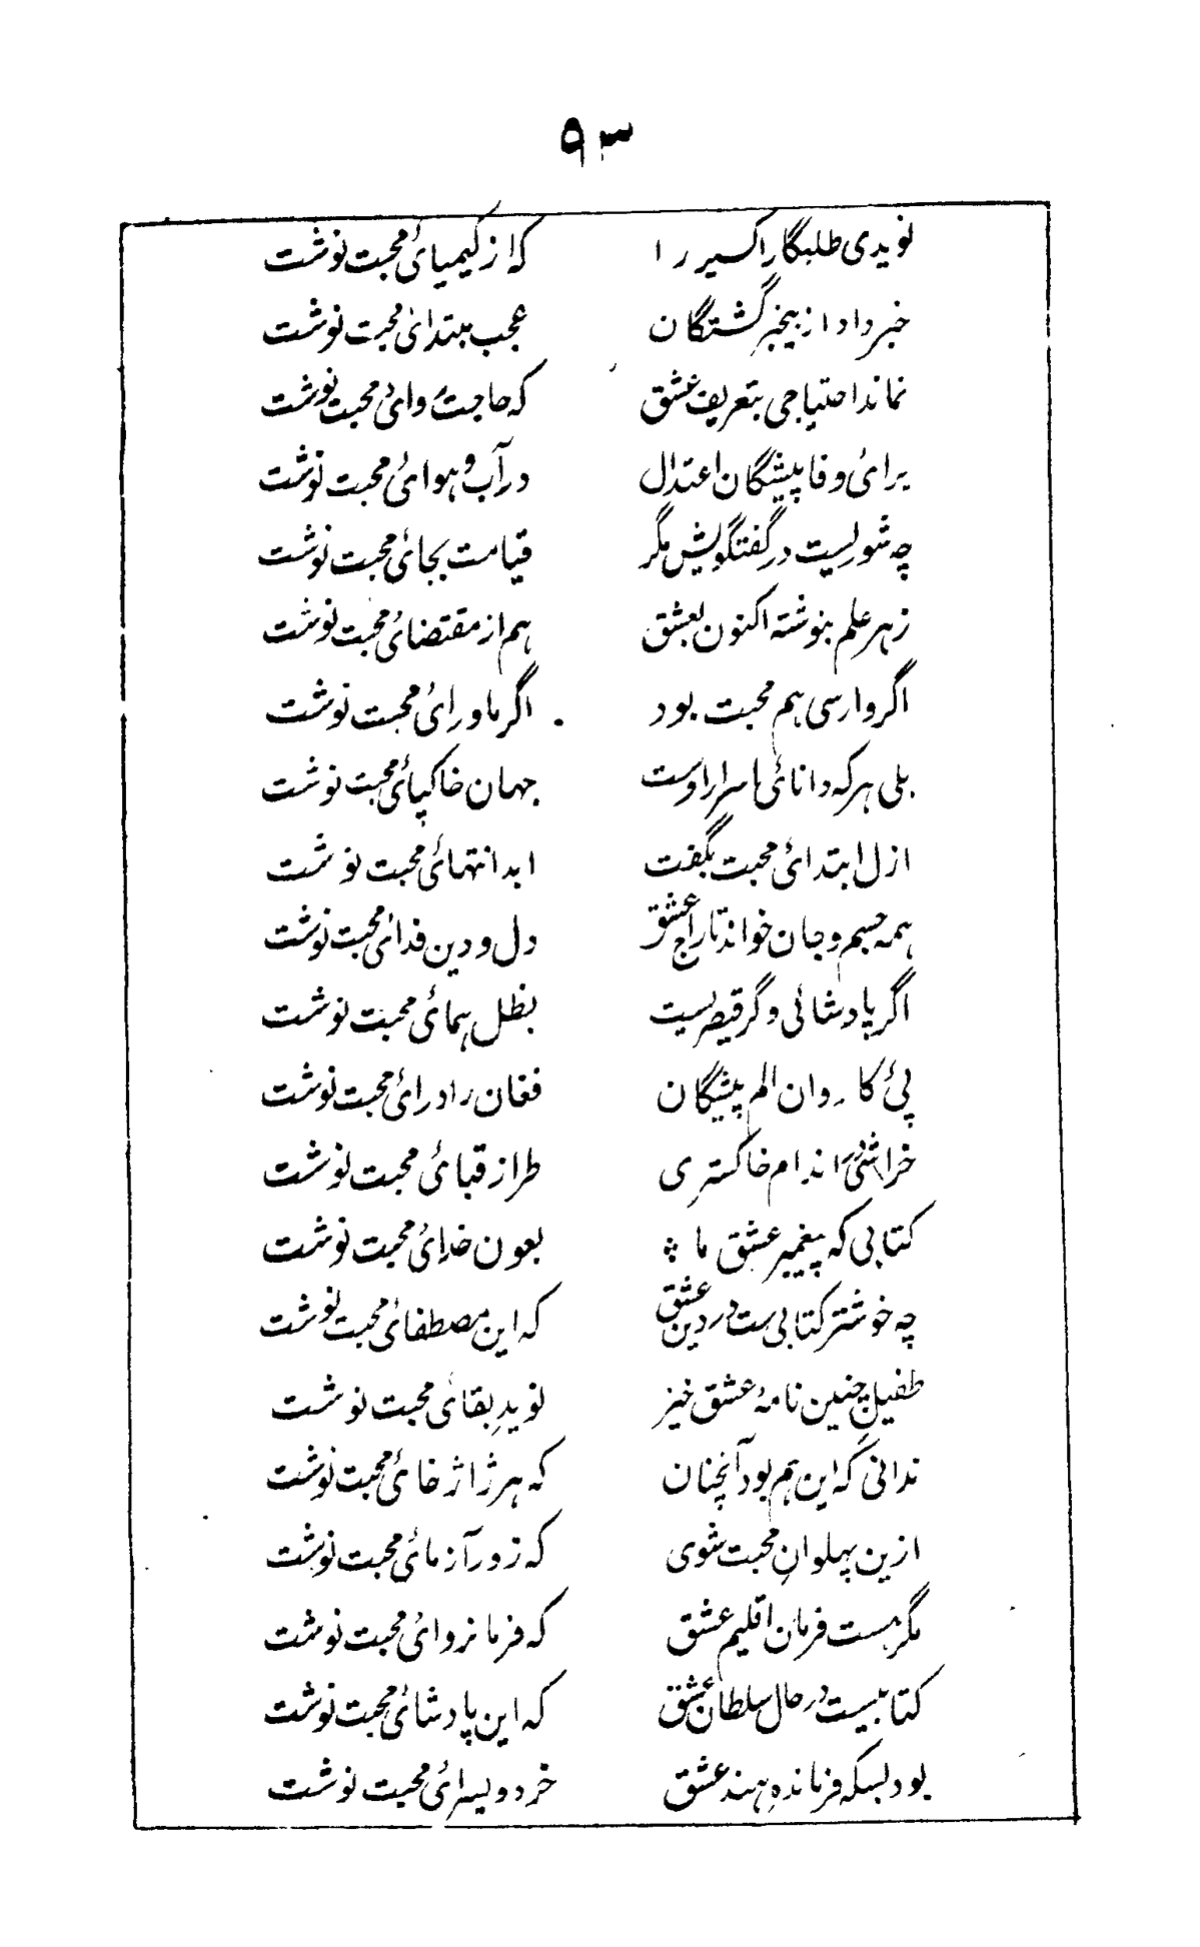 ۹۳
نویدی طلبگار اکسیر را کہ از کیمیائ محبت نوشت
خبر داد از بیخبر گشتگان عجب مبتدائ محبت نوشت
نماند احتیاجی بتعریف عشق کہ حاجت روائ محبت نوشت
برائ وفا پیشگان اعتدال در آب و ہوائ محبت نوشت
چہ شوریست در گفتگویش مگر قیامت بجائ محبت نوشت
زہر علم بنوشتہ اکنون بعشق ہم از مقتضائ محبت نوشت
اگر وارسی ہم محبت بود اگر ماورائ محبت نوشت
بلی ہر کہ دانائ اسرار اوست جہان خاکپائ محبت نوشت
ازل ابتدائ محبت بگفت ابد انتہائ محبت نوشت
ہمہ جسم و جان خواند تاراج عشق دل و دین فدائ محبت نوشت
اگر پادشائی و گر قیصریست بظل ہمائ محبت نوشت
پئ کاروان الم پیشگان فغان را درائ محبت نوشت
اندام خاکستری طراز قبائ محبت نوشت
کتابی کہ پیغمبر عشق ما بعون خدائ محبت نوشت
چہ خوشتر کتابی ست در دین عشق کہ این مصطفائ محبت نوشت
طفیل چنین نامۂ عشق خیز نوید بقائ محبت نوشت
ندانی کہ این ہم بود آنچنان کہ ہر ژاژ خائ محبت نوشت
ازین پہلوان محبت شوی کہ زور آزمائ محبت نوشت
مگر ہست فرمان اقلیم عشق کہ فرمانروائ محبت نوشت
کتابیست در حال سلطان عشق کہ این پادشائ محبت نوشت
بود بسکہ فرماندہ ہند عشق خرد ویسرائ محبت نوشت